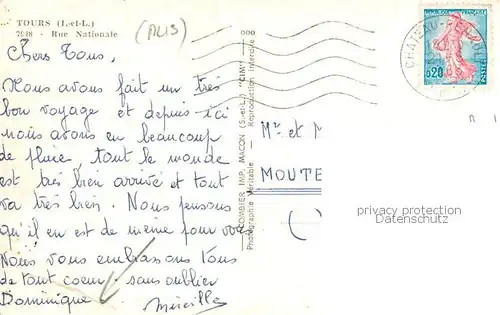 TOURS (I.-et-L.)
7238 - Rue Nationale
(AL13)
Chers Tous,
Nous avons fait un très
bon voyage et depuis ici
nous avons eu beaucoup
de pluie, tout le monde
est très bien arrivé et tout
va très bien. Nous pensons
qu'il en est de même pour vous
Nous vous embrassons tous
de tout coeur sans oublier
Dominique
Mireille
COMBIER IMP. MACON (S.-et-L.) "CIM"
Photographie Véritable - Reproduction interdite
REPUBLIQUE FRANÇAISE
0,20
POSTES
CHATEAU-RENAULT
Mr et M
MOUTE
(
privacy protection
Datenschutz